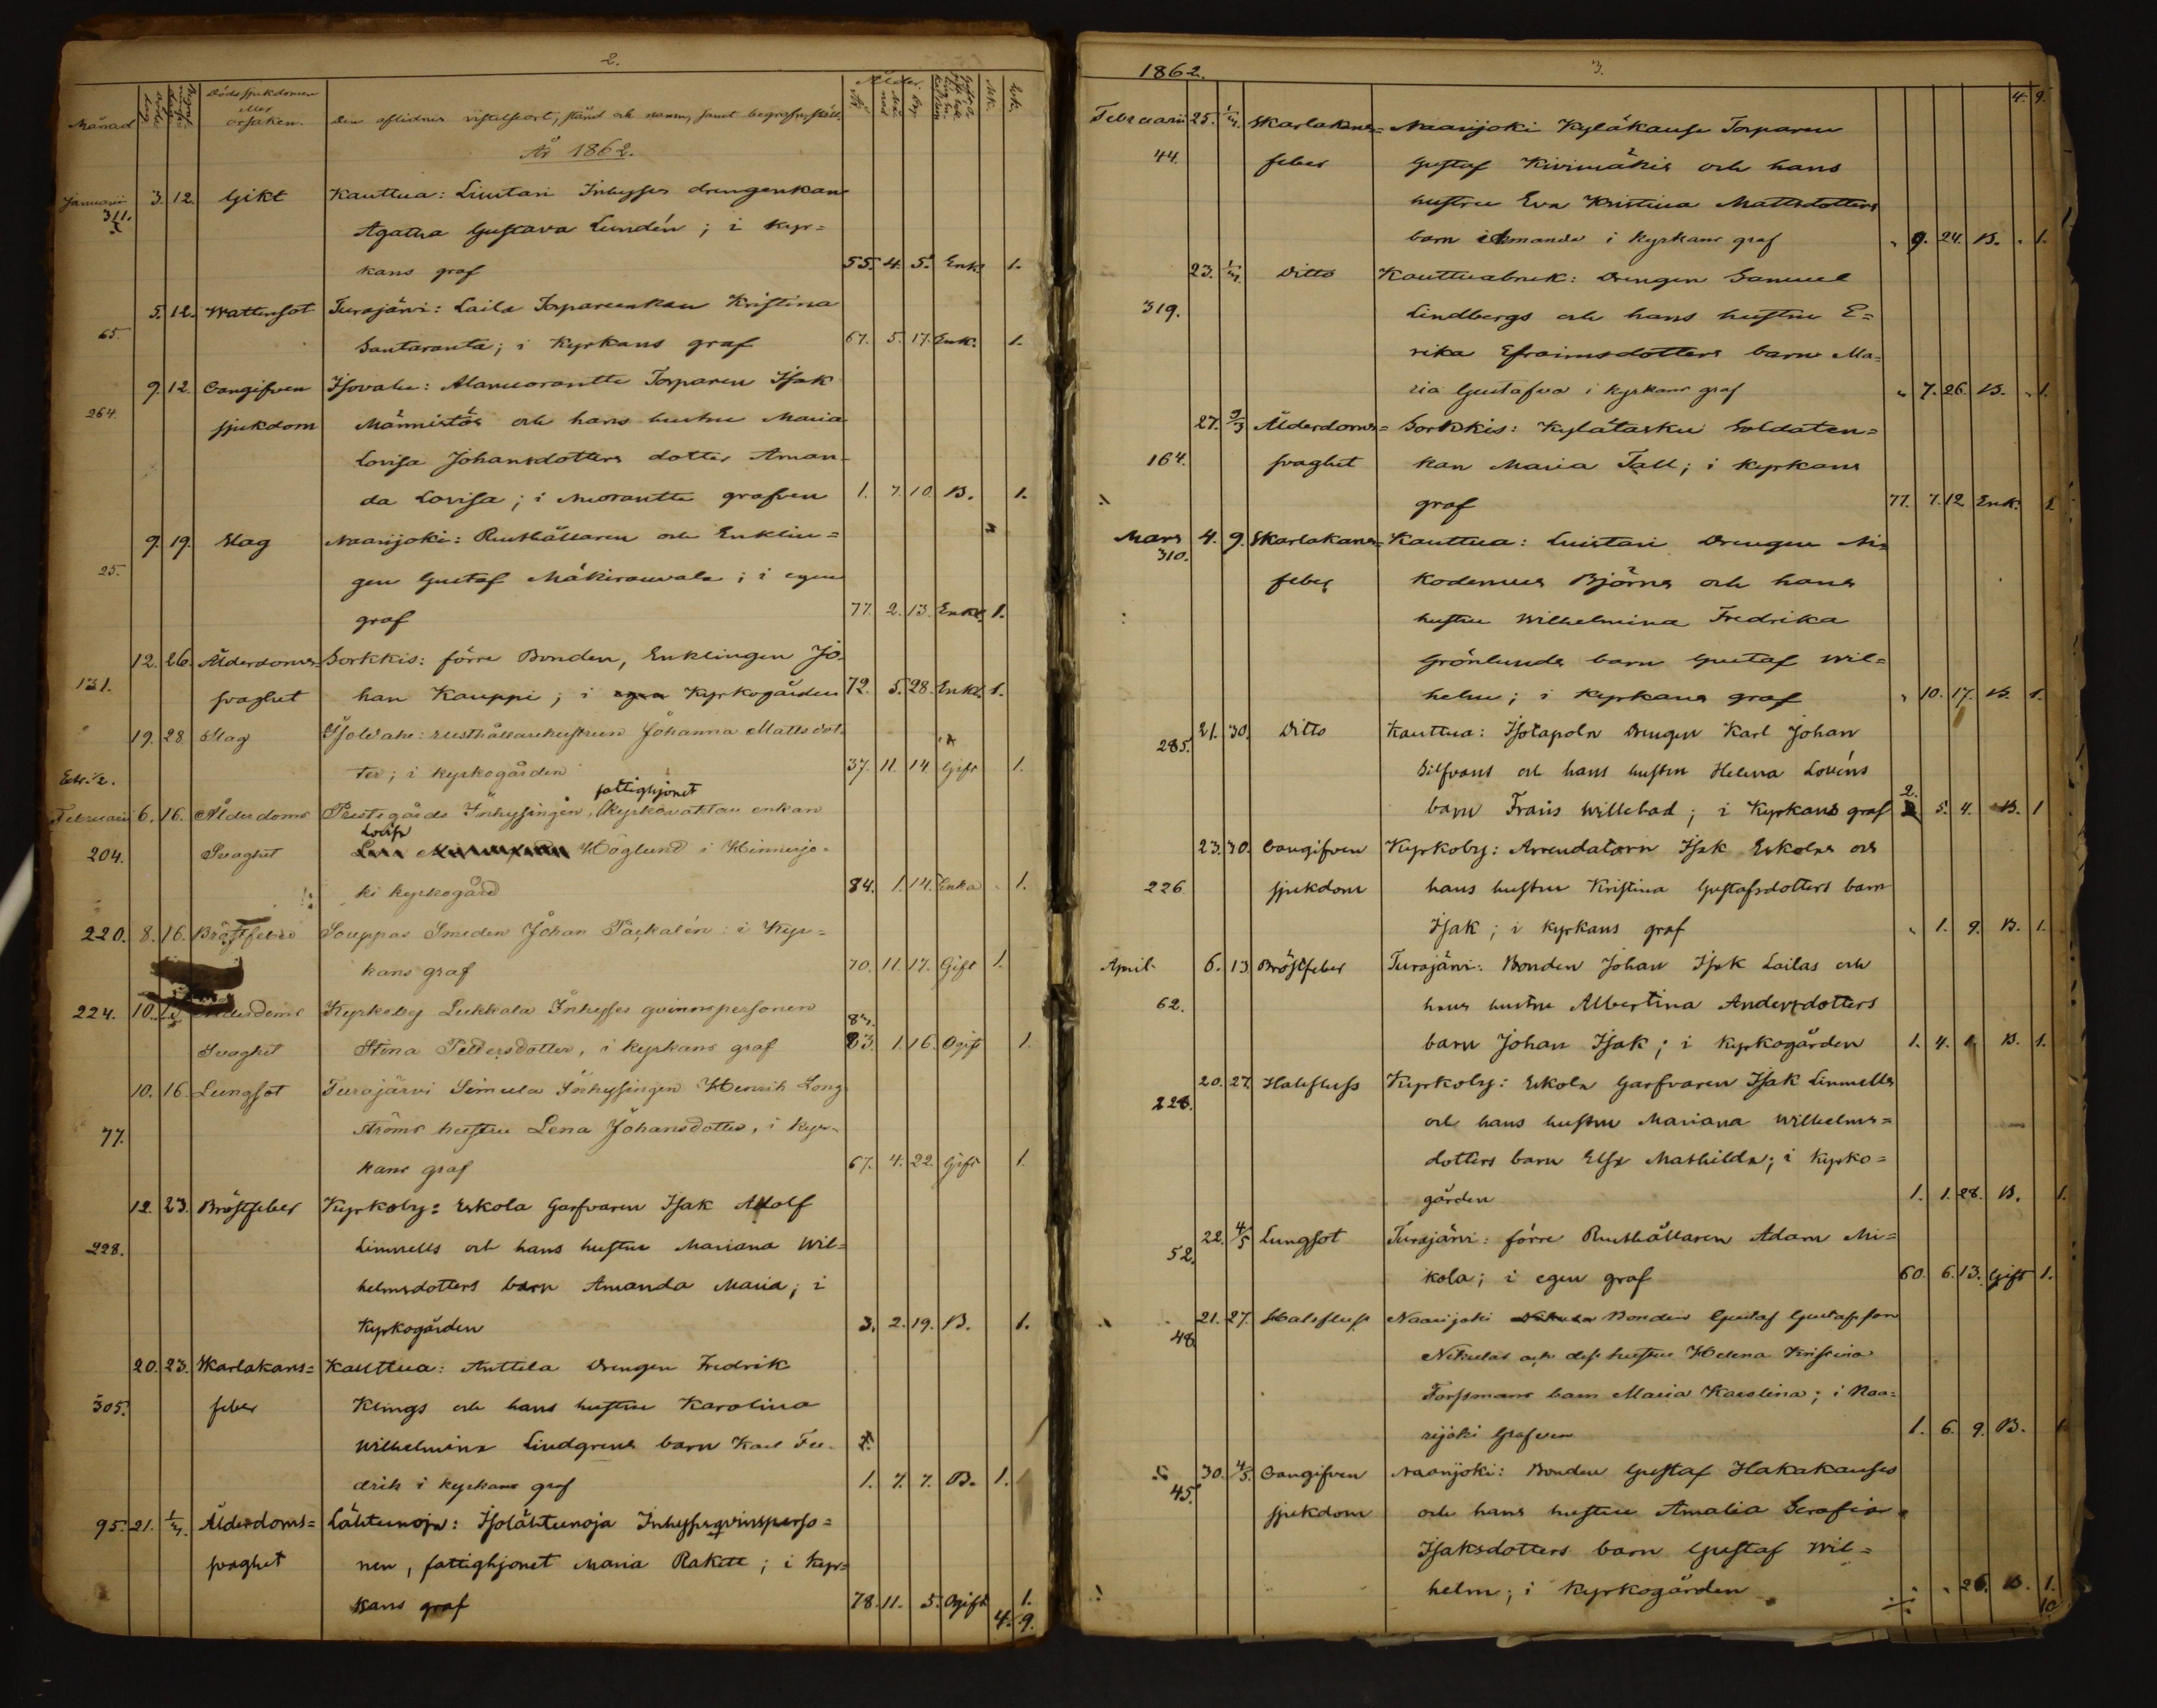 2.
Månad
Dödssjukdomen
eller
orsaken.
Den aflidnes vistelseort, stånd och namn, samt begrafn. ställe
Ålder
År
Mk.
Qvk.
År 1862.
Januarii 3. 12. Gikt Kauttua: Luistari Inhyses drengenkan
311. Agatha Gustava Lundén; i kyr=
kans graf 55. 4. 5. Enk. 1.
5. 12. Wattensot Turajärvi: Laila Torpareenkan Kristina
65. Santaranta; i Kyrkans graf 67. 5. 17. Enk. 1.
9. 12. Oangifven Isovahe: Alamorantte Torparen Isak
264. sjukdom Männistös och hans hustru Maria
Lovisa Johansdotters dotter Aman-
da Lovisa; i Morantte grafven 1. 7. 10. B. 1.
9. 19. Slag Naarijoki: Rusthållaren och Enklin=
25. gen Gustaf Mäkirauvala; i egen
graf 77. 2. 13. Enkl. 1.
12. 26. Ålderdoms= Sorkkis: förre Bonden, Enklingen Jo-
131. svaghet han Kauppi; i egen Kyrkogården 72. 5. 28. Enkl. 1.
19. 28. Slag Isovahe: rusthållarehustrun Johanna Mattsdot-
ter; i kyrkogården 37. 11. 14. Gift 1.
fattighjonet
Februarii 6. 16. Ålderdoms Prestgårds Inhysingen, kyrkovaktau enkan
Lovisa
204. Svaghet Höglund i Hinnerjo-
ki kyrkogård 84. 1. 14. Enka 1.
220. 8. 16. Bröstfeber Souppas Smeden Johan Päckalén: i Kyr=
kans graf 70. 11. 17. Gift 1.
224. 10. Ålderdoms Kyrkoby Lukkala Inhyses qvinnspersonen
83.
Svaghet Stina Pettersdotter, i kyrkans graf 83. 1. 16. Ogift 1.
10. 16. Lungsot Turajärvi Simula Inhysingen Henrik Long
77. ströms hustru Lena Johansdotter, i kyr-
kans graf 67. 4. 22. Gift 1.
12. 23. Bröstfeber Kyrkoby: Eskola Garfvaren Isak Adolf
228. Linnells och hans hustru Mariana Wil=
helmsdotters barn Amanda Maria; i
Kyrkogården 3. 2. 19. B. 1.
20. 23. Skarlakans= Kauttua: Anttila Drengen Fredrik
305. feber Klings och hans hustru Karolina
Wilhelmina Lindgrens barn Karl Fre-
drik i kyrkans graf 1. 7. 7. B. 1.
95. 21. 1/3. Ålderdoms= Lähteenoja: Isolähteenoja Inhysesqvinsperso=
svaghet nen, fattighjonet Maria Rakett; i Kyr=
kans graf 78. 11. 5. Ogift 1.
4. 9.
1862. 3.
4. 9.
Februarii 25. 1/3. Skarlakans= Naarijoki Kyläkause Torparen
44. feber Gustaf Kivimäkis och hans
hustru Eva Kristina Mattsdotters
barn Amanda i kyrkans graf " 9. 24. B. " 1.
23. 1/3. Ditto Kauttuabruk: Drengen Samuel
319. Lindbergs och hans hustru E=
rika Efraimsdotters barn Ma=
ria Gustafva i kyrkans graf " 7. 26. B. " 1.
27. 9/3 Ålderdoms= Sorkkis: Kylätasku Soldaten=
164. svaghet kan Maria Tall; i kyrkans
graf 77. 7. 12 Enk. 1
Mars 4. 9. Skarlakans= Kauttua: Luistari Drengen Ni=
310. feber kodemus Björns och hans
hustru Wilhelmina Fredrika
Grönlunds barn Gustaf Wil=
helm; i Kyrkans graf " 10. 17. B. 1.
21. 30. Ditto Kauttua: Isotapola Drengen Karl Johan
285. Silfvans och hans hustru Helena Lovéns
2.
barn Frans Willebad; i Kyrkans graf 5. 4. B. 1
23. 30. Oangifven Kyrkoby: Arrendatorn Isak Eskolas och
226. sjukdom hans hustru Kristina Gustafsdotters barn
Isak; i kyrkans graf " 1. 9. B. 1.
April 6. 13. Bröstfeber Turajärvi: Bonden Johan Isak Lailas och
62. hans hustru Albertina Andersdotters
barn Johan Isak; i Kyrkogården 1. 4. B. 1.
20. 27. Halsfluss Kyrkoby: Eskola Garfvaren Isak Linnells
228. och hans hustru Mariana Wilhelms=
dotters barn Elsa Mathilda; i Kyrko=
gården 1. 1. 28. B. 1.
22. 4/5 Lungsot Turajärvi: förre Rusthållaren Adam Mi=
52. kola; i egen graf 60. 6. 13. Gift 1.
21. 27. Halsfluss Naarijoki Bonden Gustaf Gustafsson
48. Nikulas och dess hustru Helena Kristina
Forssmans barn Maria Karolina; i Naa=
rijoki Grafven 1. 6. 9. B. 1.
30. 4/5. Oangifven Naarijoki: Bonden Gustaf Hakakauses
45. sjukdom och hans hustru Amalia Serafia
Isaksdotters barn Gustaf Wil=
helm; i kyrkogården " " 26. B. 1.
10